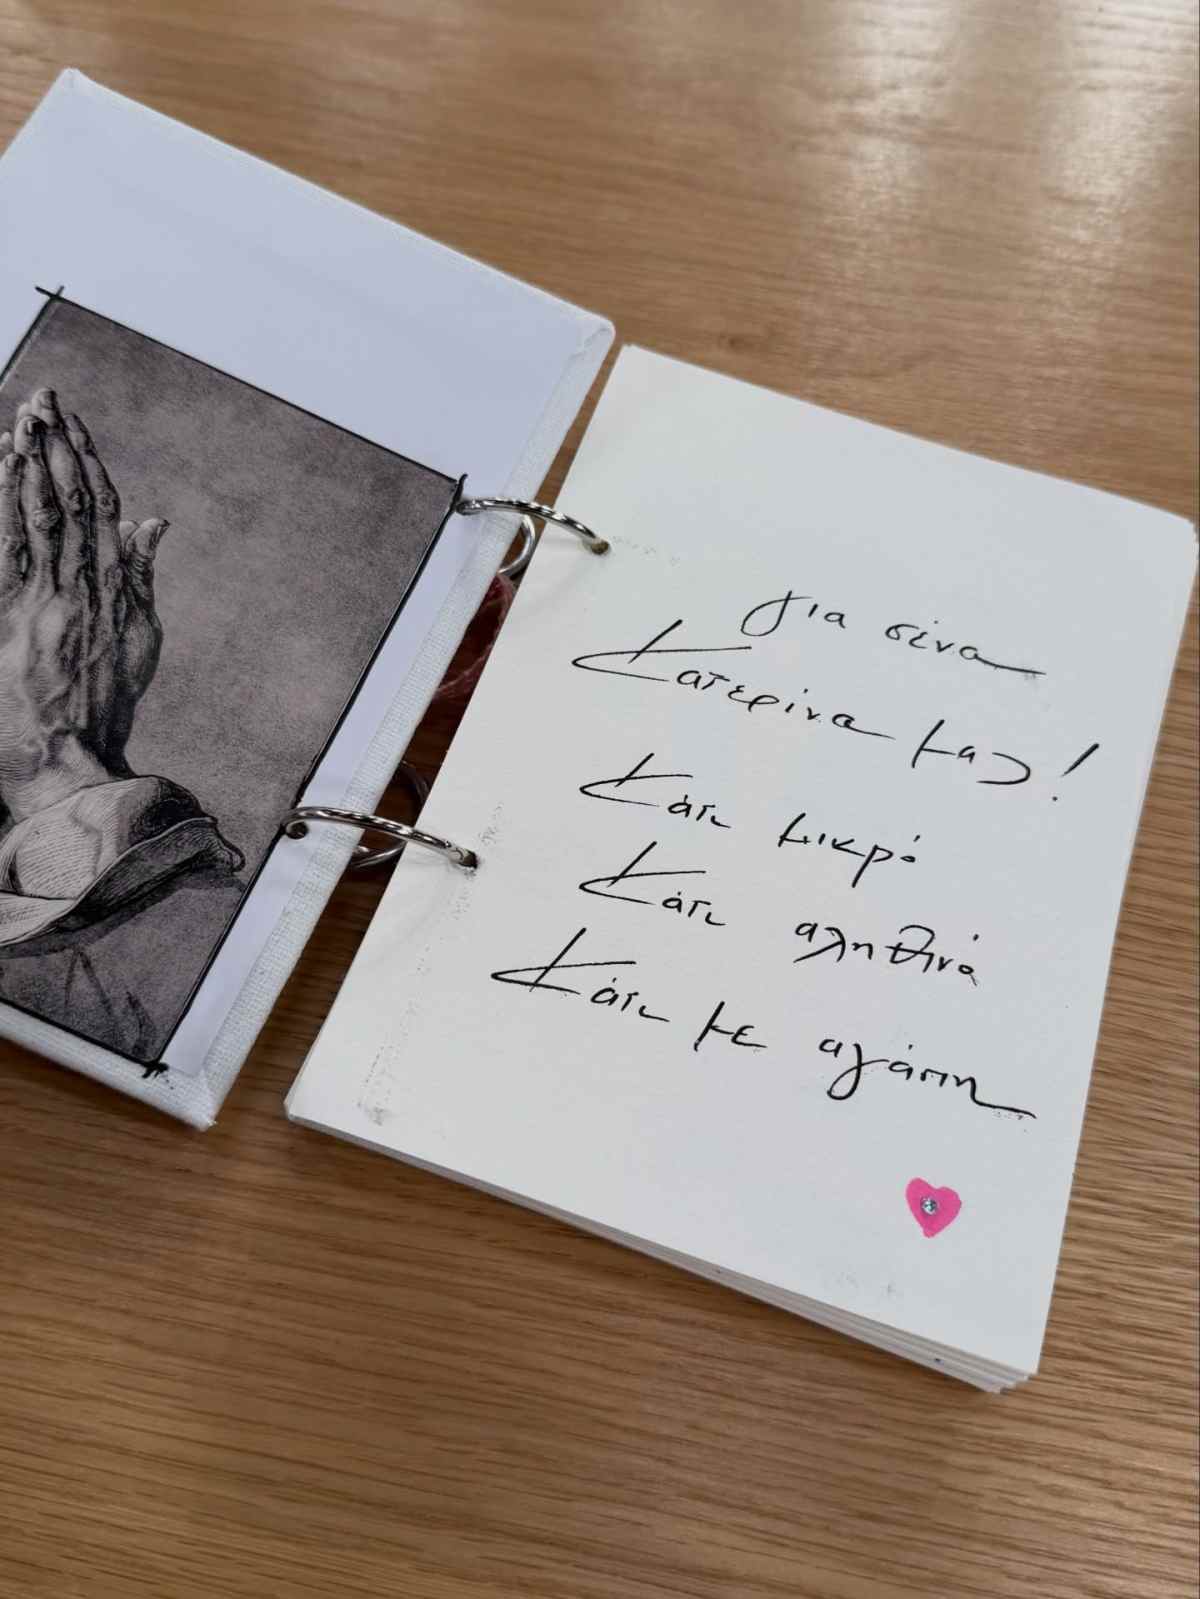 για σένα
Κατερίνα μας!
Κάτι μικρό
Κάτι αληθινό
Κάτι με αγάπη